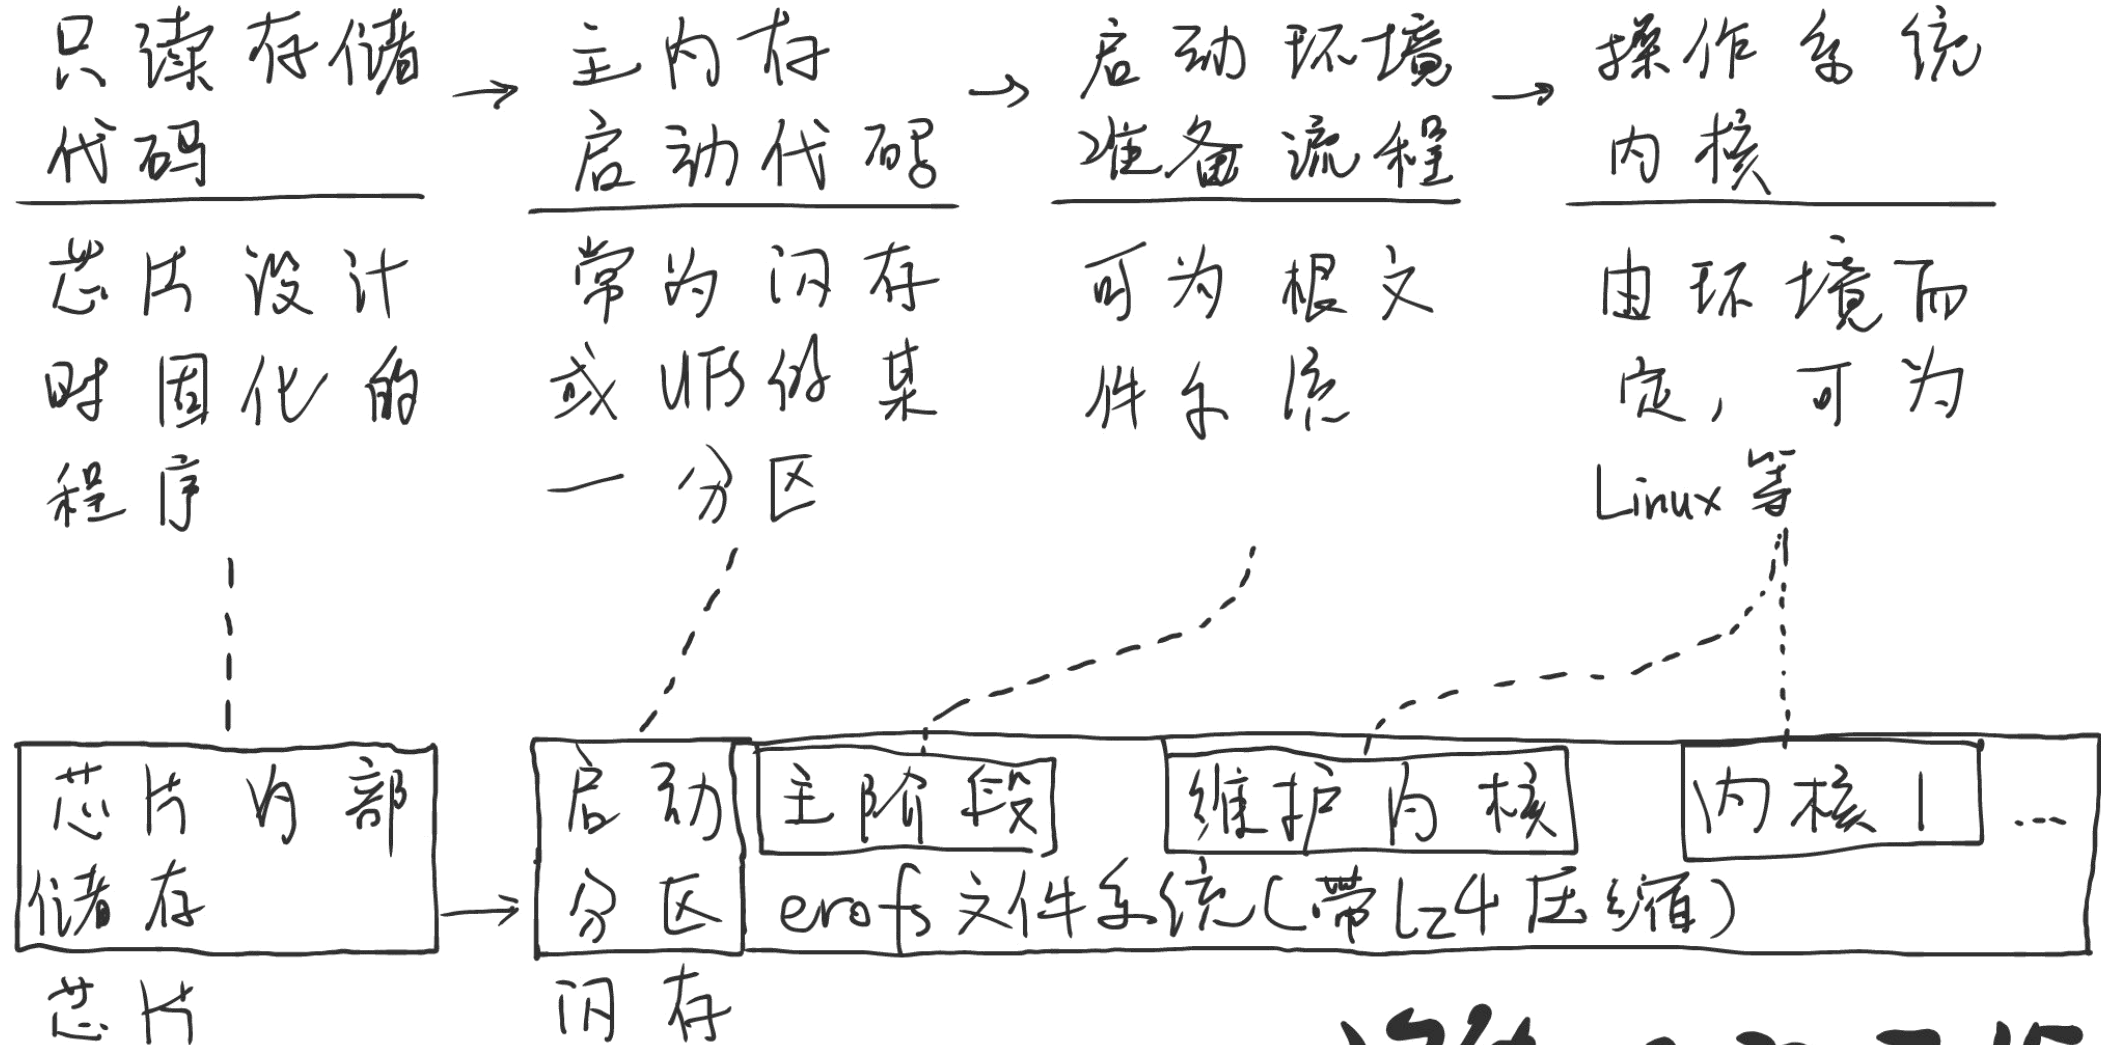 只读存储
代码
主内存
启动代码
启动环境
准备流程
操作系统
内核
芯片设计
时固化的
程序
常为闪存
或UFS的某
一分区
可为根文
件系统
由环境而
定，可为
Linux等
芯片内部
储存
启动
分区
主阶段
维护内核
内核1
...
erofs文件系统(带lz4压缩)
芯片
闪存